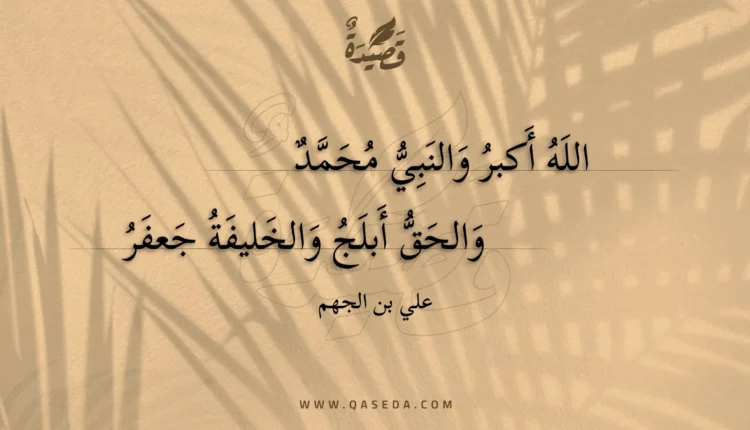 قَصِيدَةٌ
اللَهُ أَكبرُ وَالنَبِيُّ مُحَمَّدٌ
وَالحَقُّ أَبلَجُ وَالخَليفَةُ جَعفَرُ
علي بن الجهم
WWW.QASEDA.COM